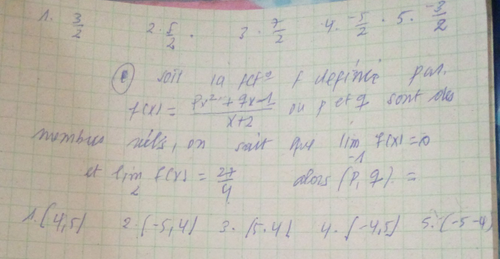 1. 3/2 2. 5/2 . 3. 7/2 4. -5/2 . 5. -3/2
soit la fct° f définie par
f(x) = px² + qx - 1 / x+2 où p et q sont des
nombres réels, on sait que lim -1 f(x) = 0
et lim 2 f(x) = 27/4 alors (p, q) =
1. (4,5) 2. (-5,4) 3. (5.4) 4. (-4,5) 5. (-5-4)